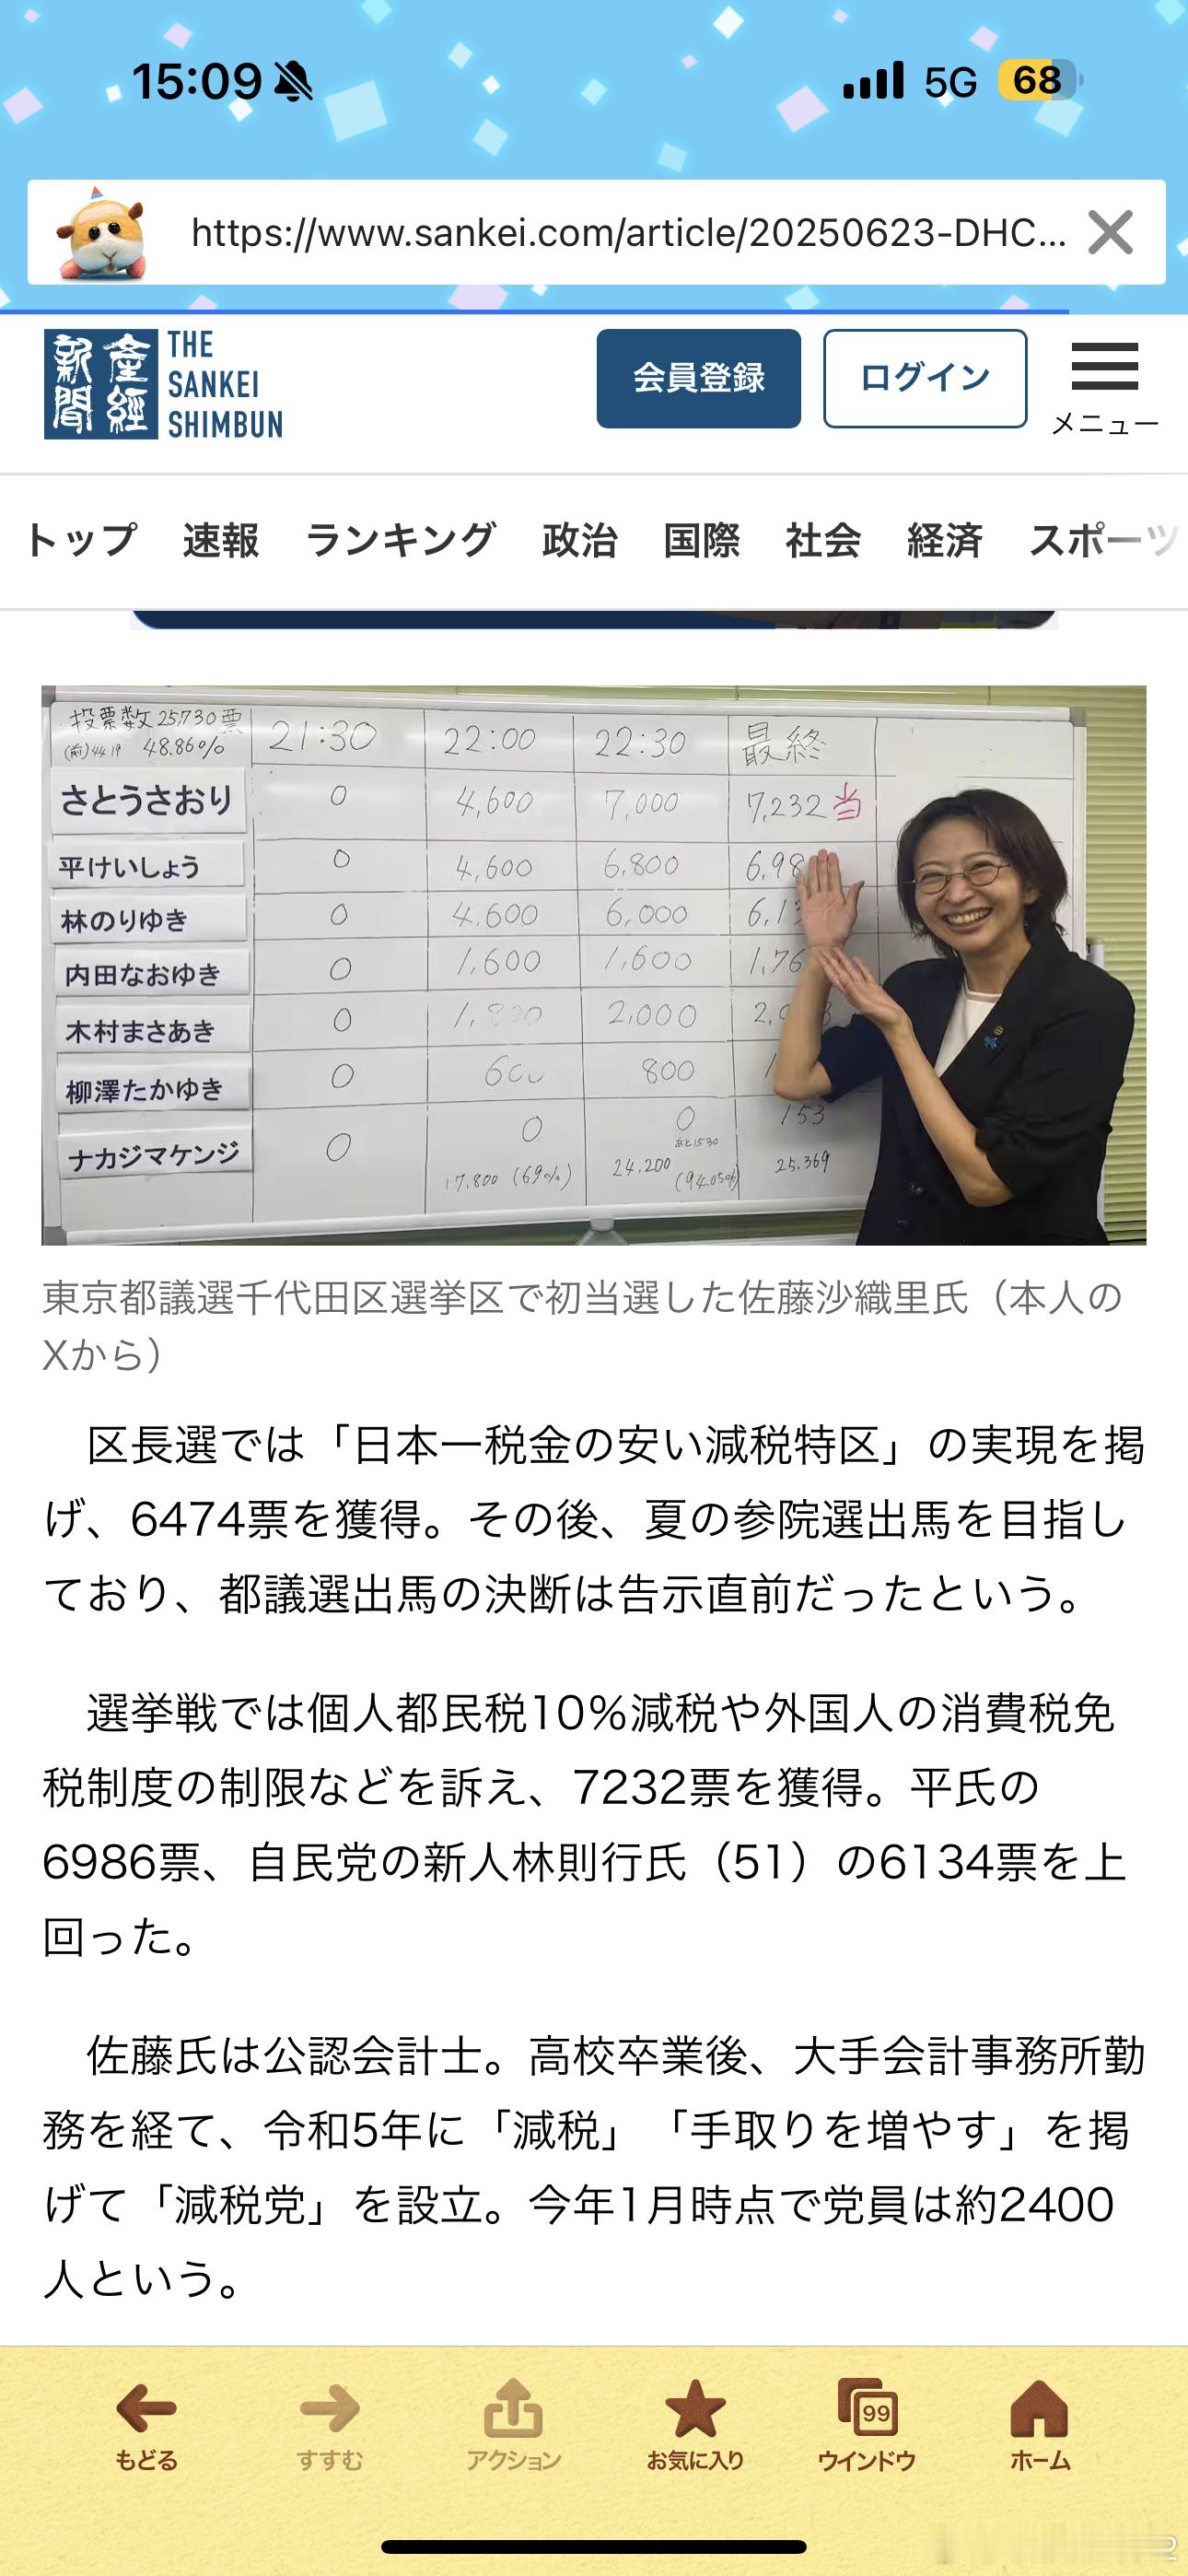 15:09
5G 68
https://www.sankei.com/article/20250623-DHC...
新聞 産經
THE
SANKEI
SHIMBUN
会員登録
ログイン
メニュー
トップ 速報 ランキング 政治 国際 社会 経済 スポーツ
投票数 25,730票
(前)44.19 48.86%
21:30 22:00 22:30 最終
さとうさおり 0 4,600 7,000 7,232 当
平けいしょう 0 4,600 6,800 6,98
林のりゆき 0 4,600 6,000 6,1
内田なおゆき 0 1,600 1,600 1,76
木村まさあき 0 2,000
柳澤たかゆき 0 800
ナカジマケンジ 0 0 0 153
あと1530
17,800 (69%) 24,200 (94.05%) 25,369
東京都議選千代田区選挙区で初当選した佐藤沙織里氏（本人の
Xから）
区長選では「日本一税金の安い減税特区」の実現を掲
げ、6474票を獲得。その後、夏の参院選出馬を目指し
ており、都議選出馬の決断は告示直前だったという。
選挙戦では個人都民税10%減税や外国人の消費税免
税制度の制限などを訴え、7232票を獲得。平氏の
6986票、自民党の新人林則行氏（51）の6134票を上
回った。
佐藤氏は公認会計士。高校卒業後、大手会計事務所勤
務を経て、令和5年に「減税」「手取りを増やす」を掲
げて「減税党」を設立。今年1月時点で党員は約2400
人という。
99
もどる すすむ アクション お気に入り ウインドウ ホーム